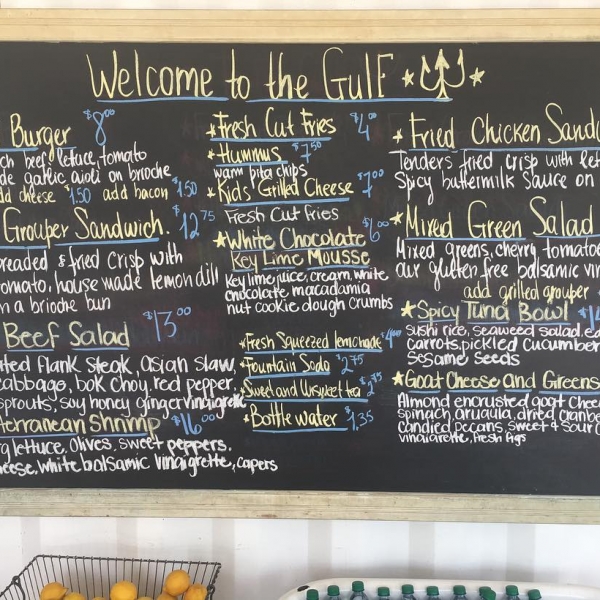 Welcome to the Gulf
Burger $8.00
ch beef, lettuce, tomato
de garlic aioli on brioche
add cheese $1.50 add bacon $1.50
Grouper Sandwich $12.75
breaded & fried crisp with
tomato, house made lemon dill
n a brioche bun
Beef Salad $13.00
ted flank steak, asian slaw,
cabbage, bok choy, red pepper,
sprouts, soy honey ginger vinaigrette
terranean Shrimp $16.00
g lettuce, olives, sweet peppers,
heese, white balsamic vinaigrette, capers
Fresh Cut Fries $4.00
Hummus $7.50
warm pita chips
Kids' Grilled Cheese $7.00
Fresh Cut Fries
White Chocolate $6.00
Key Lime Mousse
Key lime juice, cream, white
chocolate, macadamia
nut cookie dough crumbs
Fresh Squeezed lemonade
Fountain Soda $2.75
Sweet and Unsweet tea
Bottle Water $1.35
Fried Chicken Sandw
Tenders fried crisp with let
Spicy buttermilk Sauce on
Mixed Green Salad
Mixed greens, cherry tomatoe
our gluten free balsamic vin
add grilled grouper
Spicy Tuna Bowl $14
sushi rice, seaweed salad, ed
carrots, pickled cucumber
sesame seeds
Goat Cheese and Greens
Almond encrusted goat chee
spinach, arugula, dried cranbe
candied pecans, sweet & sour
vinaigrette, fresh figs